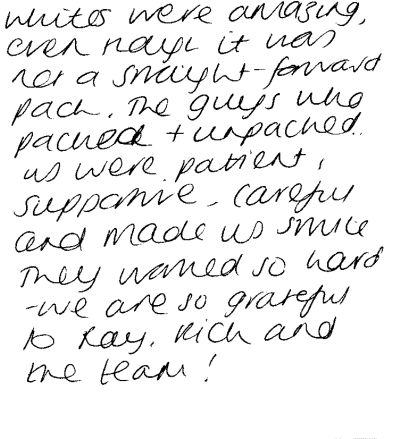 Whites were amazing,
even though it was
not a straight-forward
pack. The guys who
packed + unpacked
us were patient,
supportive, careful
and made us smile
They worked so hard
-we are so grateful
to Ray, Rich and
the team!